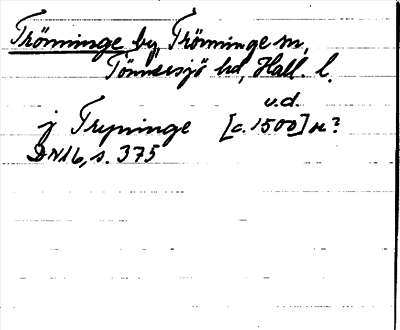 Trönninge by, Trönninge sn,
Tönnersjö hd, Hall. l.
u.d.
j Trypninge [c. 1500] n?
DN 16, s. 375